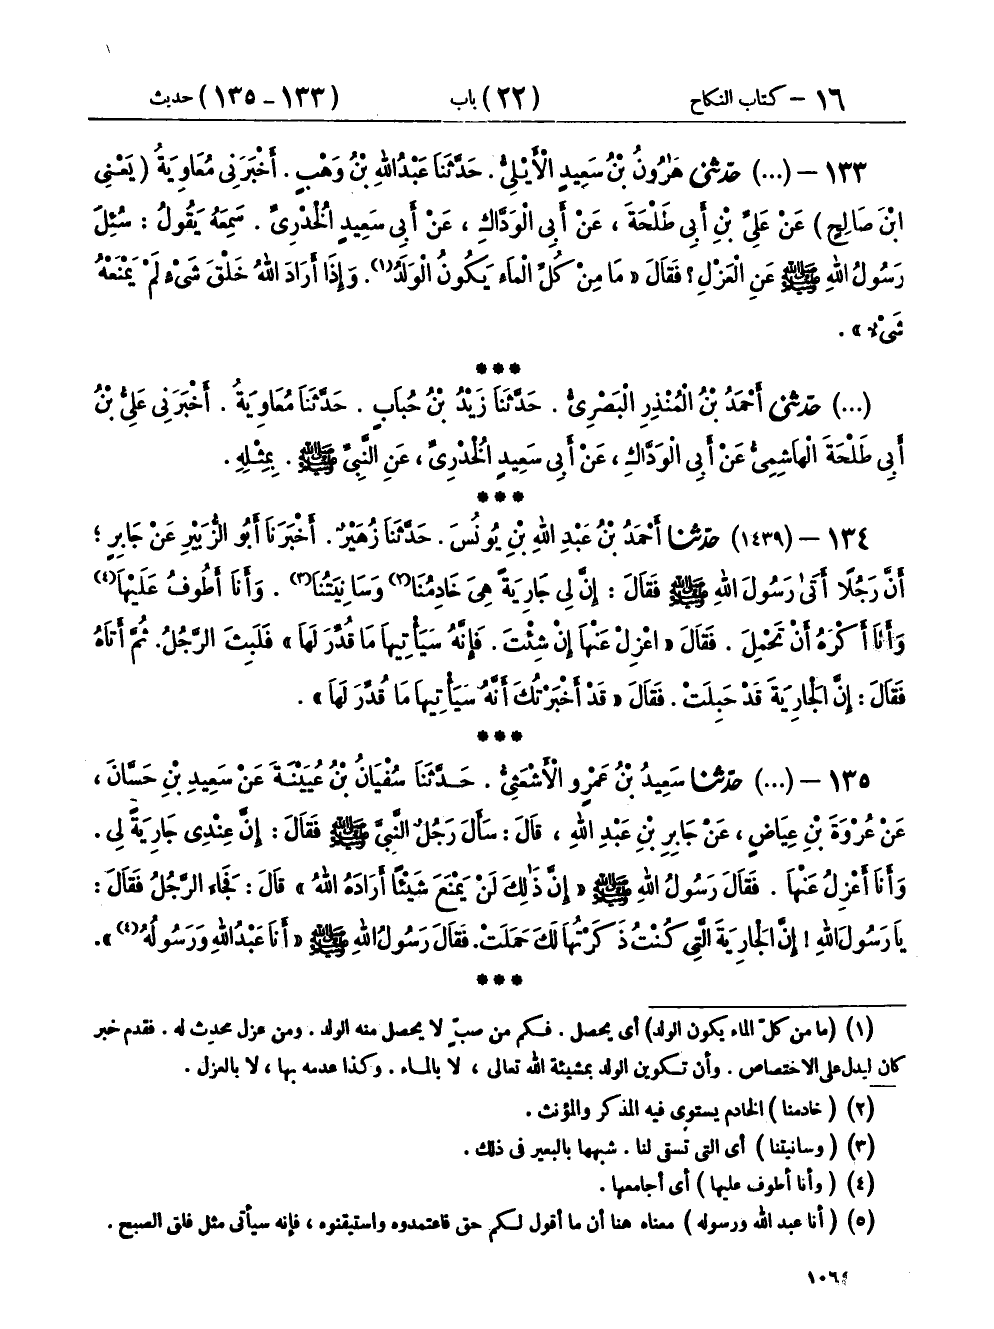 ١٦ – كتاب النكاح (٢٢) باب (١٣٣ – ١٣٥) حديث
١٣٣ – (...) حَدَّثَنِي هَٰرُونُ بْنُ سَعِيدٍ الْأَيْلِيُّ . حَدَّثَنَا عَبْدُ اللهِ بْنُ وَهْبٍ . أَخْبَرَنِي مُعَاوِيَةُ ( يَعْنِي
ابْنَ صَالِحٍ ) عَنْ عَلِيِّ بْنِ أَبِي طَلْحَةَ ، عَنْ أَبِي الْوَدَّاكِ ، عَنْ أَبِي سَعِيدٍ الْخُدْرِيِّ . سَمِعَهُ يَقُولُ : سُئِلَ
رَسُولُ اللهِ ﷺ عَنِ الْعَزْلِ ؟ فَقَالَ « مَا مِنْ كُلِّ الْمَاءِ يَكُونُ الْوَلَدُ(١) . وَإِذَا أَرَادَ اللهُ خَلْقَ شَيْءٍ لَمْ يَمْنَعْهُ
شَيْءٌ » .
***
(...) حَدَّثَنِي أَحْمَدُ بْنُ الْمُنْذِرِ الْبَصْرِيُّ . حَدَّثَنَا زَيْدُ بْنُ حُبَابٍ . حَدَّثَنَا مُعَاوِيَةُ . أَخْبَرَنِي عَلِيُّ بْنُ
أَبِي طَلْحَةَ الْهَاشِمِيُّ عَنْ أَبِي الْوَدَّاكِ ، عَنْ أَبِي سَعِيدٍ الْخُدْرِيِّ ، عَنِ النَّبِيِّ ﷺ . بِمِثْلِهِ .
***
١٣٤ – (١٤٣٩) حَدَّثَنَا أَحْمَدُ بْنُ عَبْدِ اللهِ بْنِ يُونُسَ . حَدَّثَنَا زُهَيْرٌ . أَخْبَرَنَا أَبُو الزُّبَيْرِ عَنْ جَابِرٍ ؛
أَنَّ رَجُلًا أَتَىٰ رَسُولَ اللهِ ﷺ فَقَالَ : إِنَّ لِي جَارِيَةً هِيَ خَادِمُنَا(٢) وَسَانِيَتُنَا(٣) . وَأَنَا أَطُوفُ عَلَيْهَا(٤)
وَأَنَا أَكْرَهُ أَنْ تَحْمِلَ . فَقَالَ « اعْزِلْ عَنْهَا إِنْ شِئْتَ . فَإِنَّهُ سَيَأْتِيهَا مَا قُدِّرَ لَهَا » فَلَبِثَ الرَّجُلُ. ثُمَّ أَتَاهُ
فَقَالَ : إِنَّ الْجَارِيَةَ قَدْ حَبِلَتْ . فَقَالَ « قَدْ أَخْبَرْتُكَ أَنَّهُ سَيَأْتِيهَا مَا قُدِّرَ لَهَا » .
***
١٣٥ – (...) حَدَّثَنَا سَعِيدُ بْنُ عَمْرٍو الْأَشْعَثِيُّ . حَدَّثَنَا سُفْيَانُ بْنُ عُيَيْنَةَ عَنْ سَعِيدِ بْنِ حَسَّانَ ،
عَنْ عُرْوَةَ بْنِ عِيَاضٍ ، عَنْ جَابِرِ بْنِ عَبْدِ اللهِ ، قَالَ : سَأَلَ رَجُلٌ النَّبِيَّ ﷺ فَقَالَ : إِنَّ عِنْدِي جَارِيَةً لِي .
وَأَنَا أَعْزِلُ عَنْهَا . فَقَالَ رَسُولُ اللهِ ﷺ « إِنَّ ذَٰلِكَ لَنْ يَمْنَعَ شَيْئًا أَرَادَهُ اللهُ » قَالَ : فَجَاءَ الرَّجُلُ فَقَالَ :
يَا رَسُولَ اللهِ ! إِنَّ الْجَارِيَةَ الَّتِي كُنْتُ ذَكَرْتُهَا لَكَ حَمَلَتْ. فَقَالَ رَسُولُ اللهِ ﷺ « أَنَا عَبْدُ اللهِ وَرَسُولُهُ(٤) ».
***
(١) (ما من كلّ الماء يكون الولد) أى يحصل . فكم من صبّ لا يحصل منه الولد . ومن عزل محدث له . فقدم خبر
كان ليدل على الاختصاص . وأن تكوين الولد بمشيئة الله تعالى ، لا بالماء . وكذا عدمه بها ، لا بالعزل .
(٢) ( خادمنا ) الخادم يستوى فيه المذكر والمؤنث .
(٣) ( وسانيتنا ) أى التى تسقى لنا . شبهها بالبعير فى ذلك .
(٤) ( وأنا أطوف عليها ) أى أجامعها .
(٥) ( أنا عبد الله ورسوله ) معناه هنا أن ما أقول لكم حق فاعتمدوه واستيقنوه ، فإنه سيأتى مثل فلق الصبح .
١٠٦٤